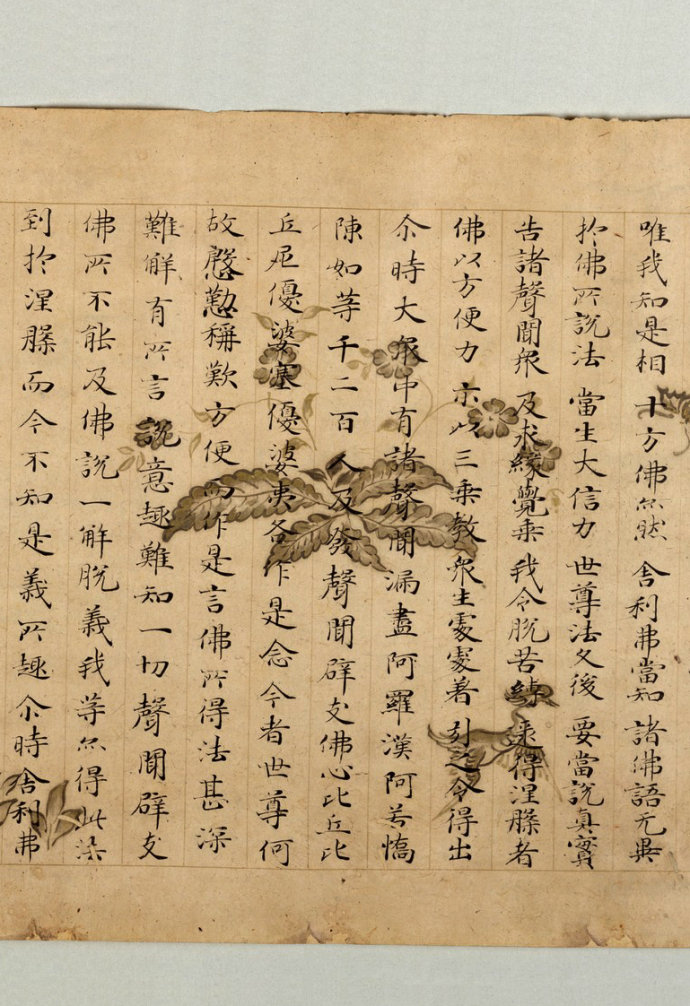 唯我知是相 十方佛亦然 舍利弗當知 諸佛語无異
於佛所說法 當生大信力 世尊法久後 要當說真實
告諸聲聞眾 及求緣覺乘 我令脫苦縛 逮得涅槃者
佛以方便力 示以三乘教 眾生處處著 引之令得出
尒時大眾中有諸聲聞漏盡阿羅漢阿若憍
陳如等千二百人及發聲聞辟支佛心比丘比
丘尼優婆塞優婆夷各作是念今者世尊何
故慇懃稱歎方便而作是言佛所得法甚深
難解有所言說意趣難知一切聲聞辟支
佛所不能及佛說一解脫義我等亦得此法
到於涅槃而今不知是義所趣尒時舍利弗